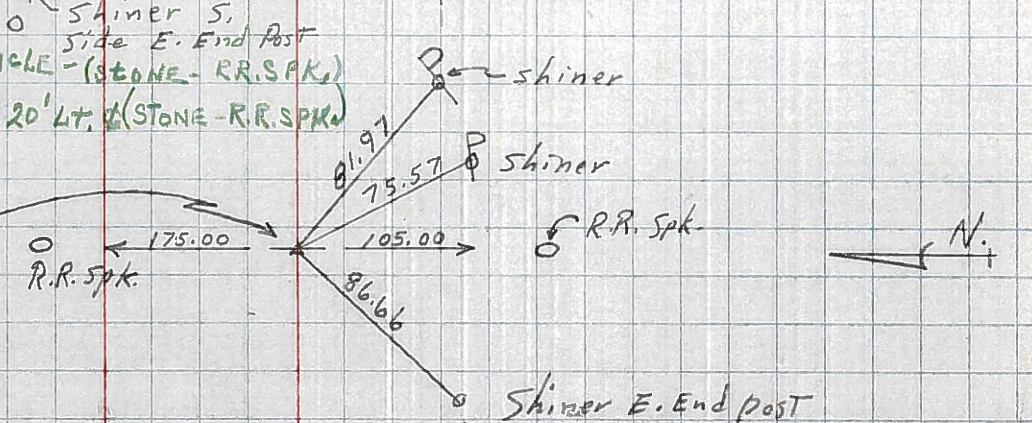 Shiner S,
Side E. End Post
(STONE - RR. SPK.)
20' Lt. ¢ (STONE - R.R. SPK.)
P
shiner
81.97
P
75.57
shiner
175.00
105.00
R.R. Spk.
N.
R.R. Spk.
86.66
Shiner E. End post